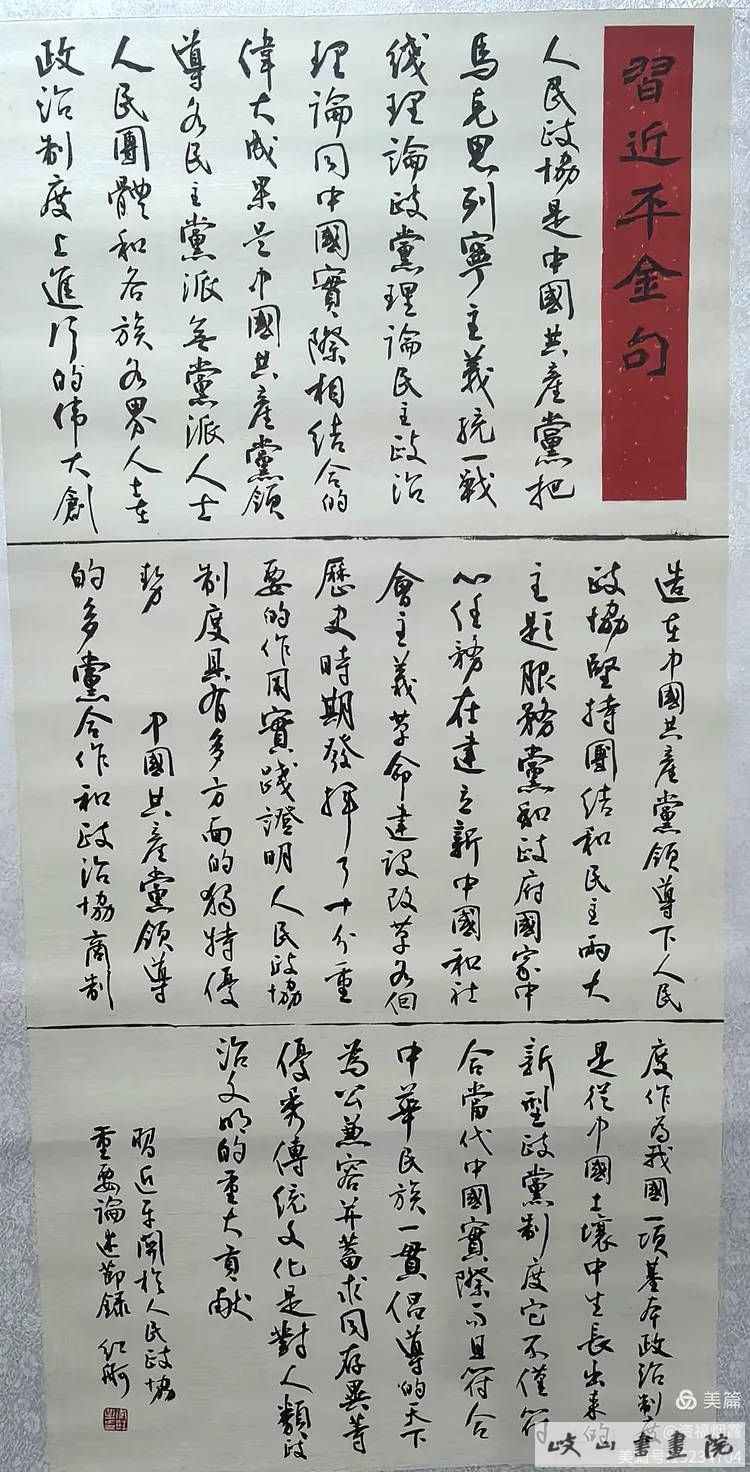 習近平金句
人民政協是中國共產黨把
馬克思列寧主義統一戰
綫理論政黨理論民主政治
理論同中國實際相結合的
偉大成果是中國共產黨領
導各民主黨派無黨派人士
人民團體和各族各界人士在
政治制度上進行的偉大創
造在中國共產黨領導下人民
政協堅持團結和民主兩大
主題服務黨和政府國家中
心任務在建立新中國和社
會主義革命建設改革各個
歷史時期發揮了十分重
要的作用實踐證明人民政協
制度具有多方面的獨特優
勢 中國共產黨領導
的多黨合作和政治協商制
度作為我國一項基本政治制度
是從中國土壤中生長出來的
新型政黨制度它不僅符
合當代中國實際而且符合
中華民族一貫倡導的天下
為公兼容并蓄求同存異等
優秀傳統文化是對人類政
治文明的重大貢獻
習近平關於人民政協
重要論述節錄
美篇
@資福烟霞
美篇号
岐山書畫院